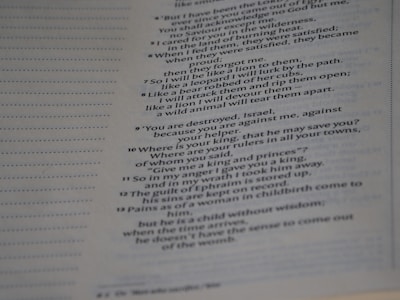 4 'But I have been the LORD your God
ever since you came out of Egypt.
You shall acknowledge no God but me,
no Saviour except me.
5 I cared for you in the wilderness,
in the land of burning heat.
6 When I fed them, they were satisfied;
when they were satisfied, they became
proud;
then they forgot me.
7 So I will be like a lion to them,
like a leopard I will lurk by the path.
8 Like a bear robbed of her cubs,
I will attack them and rip them open;
like a lion I will devour them –
a wild animal will tear them apart.
9 'You are destroyed, Israel,
because you are against me, against
your helper.
10 Where is your king, that he may save you?
Where are your rulers in all your towns,
of whom you said,
"Give me a king and princes"?
11 So in my anger I gave you a king,
and in my wrath I took him away.
12 The guilt of Ephraim is stored up,
his sins are kept on record.
13 Pains as of a woman in childbirth come to
him,
but he is a child without wisdom;
when the time arrives,
he doesn't have the sense to come out
of the womb.